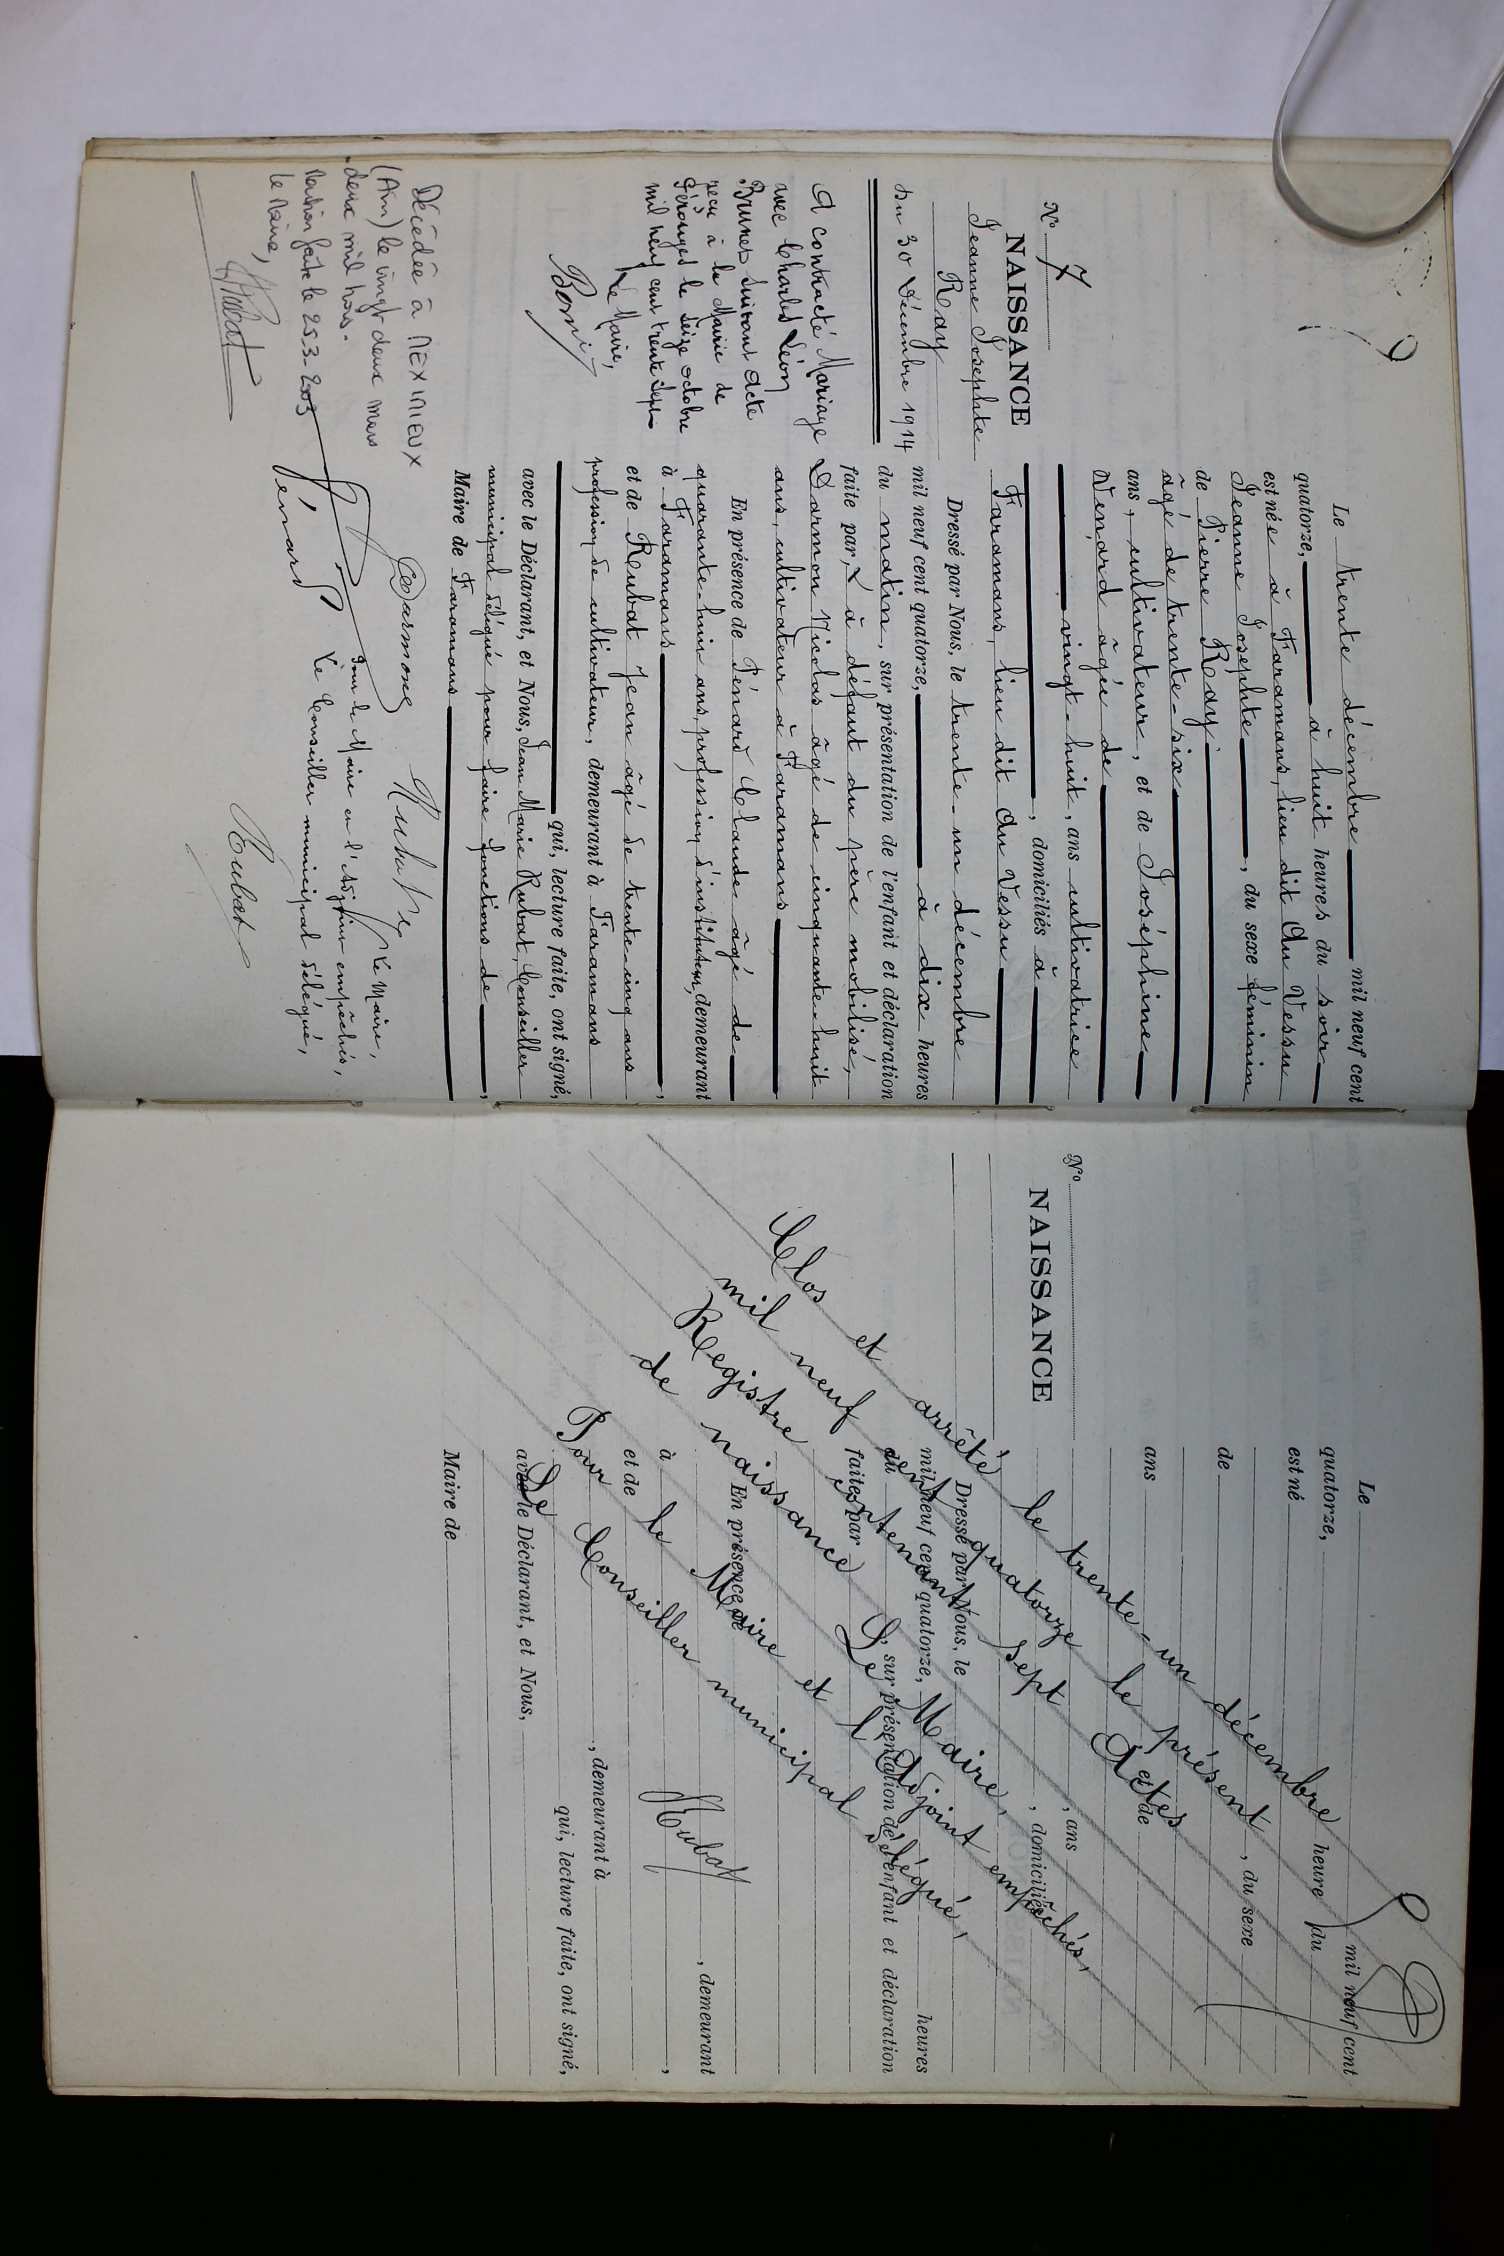 9
N° 7
NAISSANCE
Jeanne Josephte
Ray
Du 30 Décembre 1914
A contracté Mariage
avec Charles Léon
Brunet suivant acte
reçu à la Mairie de
Pérouges le seize octobre
mil neuf cent trente sept
Le Maire,
Décédée à MEXIMIEUX
(Ain) le vingt deux mars
deux mil trois.
Mention faite le 25.3.2003
Le Maire,
Le trente décembre mil neuf cent
quatorze, à huit heures du soir
est née à Faramans, lieu dit Au Vessu
Jeanne Josephte, du sexe féminin
de Pierre Ray
âgé de trente-six
ans, cultivateur, et de Joséphine
Venard âgée de
vingt-huit, ans cultivatrice
, domiciliés à
Faramans, lieu dit Au Vessu
Dressé par Nous, le trente-un décembre
mil neuf cent quatorze, à dix heures
du matin, sur présentation de l'enfant et déclaration
faite par, à défaut du père mobilisé,
Darmon Nicolas âgé de cinquante-huit
ans, cultivateur à Faramans
En présence de Pénard Claude âgé de
quarante-huit ans, profession d'instituteur, demeurant
à Faramans,
et de Rubat Jean âgé de trente-cinq ans
profession de cultivateur, demeurant à Faramans
qui, lecture faite, ont signé,
avec le Déclarant, et Nous, Jean Marie Rubat, Conseiller
municipal délégué pour faire fonctions de,
Maire de Faramans
Darmon Rubat Le Maire,
Pour le Maire et l'Adjoint empêchés,
Pénard Le Conseiller municipal délégué,
Rubat
N°
NAISSANCE
Le mil neuf cent
quatorze, heure du
est né
, du sexe
de
ans et de
, ans
, domiciliés
Dressé par Nous, le
mil neuf cent quatorze, heures
du, sur présentation de l'enfant et déclaration
faite par
En présence de
, demeurant
à,
et de
, demeurant à
qui, lecture faite, ont signé,
avec le Déclarant, et Nous,
Maire de
Clos et arrêté le trente-un décembre
mil neuf cent quatorze le présent
Registre contenant sept Actes
de naissance
Le Maire,
Pour le Maire et l'Adjoint empêchés,
Le Conseiller municipal délégué,
Rubat